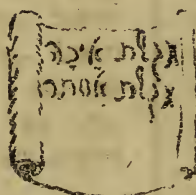 מגלת איכה
מגלת אסתר